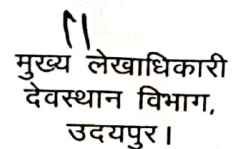 मुख्य लेखाधिकारी
देवस्थान विभाग,
उदयपुर।